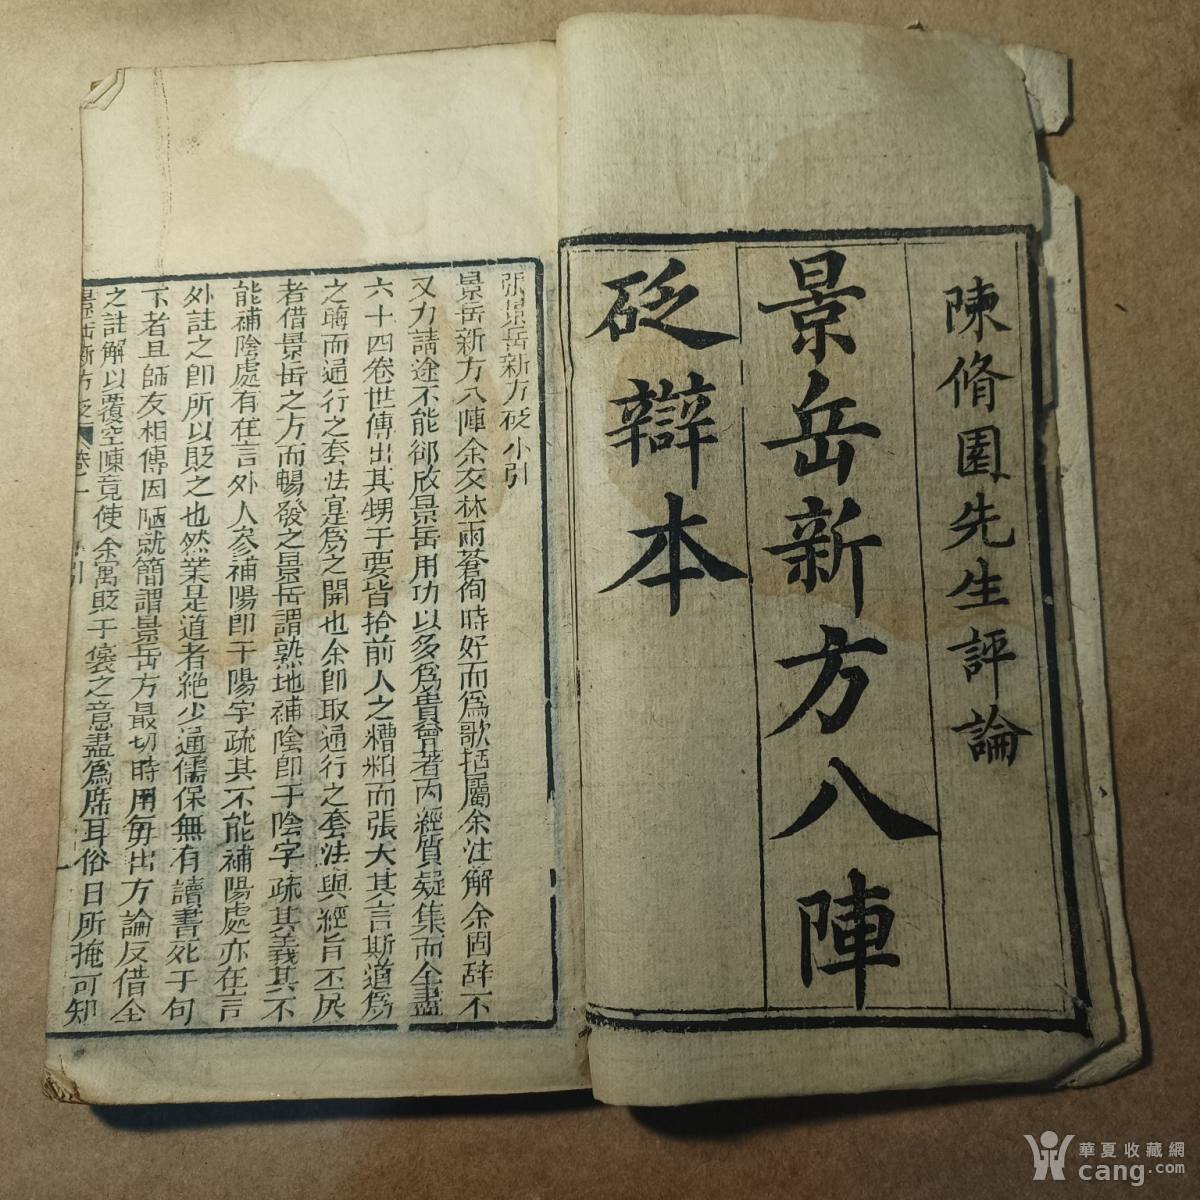 陳脩園先生評論
景岳新方八陣
砭辯本
張景岳新方砭小引
景岳新方八陣余友林雨蒼徇時好而爲歌括屬余注解余固辭不
又力請途不能卻放景岳用功以多爲貴曾著內經質疑集而全盡
六十四卷世傳出其甥手要皆拾前人之糟粕而張大其言斯道爲
之晦而通行之套法寔爲之開也余卽取通行之套法與經旨不戾
者借景岳之方而暢發之景岳謂熟地補陰卽于陰字疏其義其不
能補陰處有在言外人參補陽卽于陽字疏其不能補陽處亦在言
外註之卽所以貶之也然業是道者絶少通儒保無有讀書死于句
下者且師友相傳因陋就簡謂景岳方最切時用每出方論反借全
之註解以覆空陳竟使余寓貶于褒之意盡爲庸耳俗目所掩可知
景岳新方砭 卷一 小引 一
華夏收藏網
cang.com